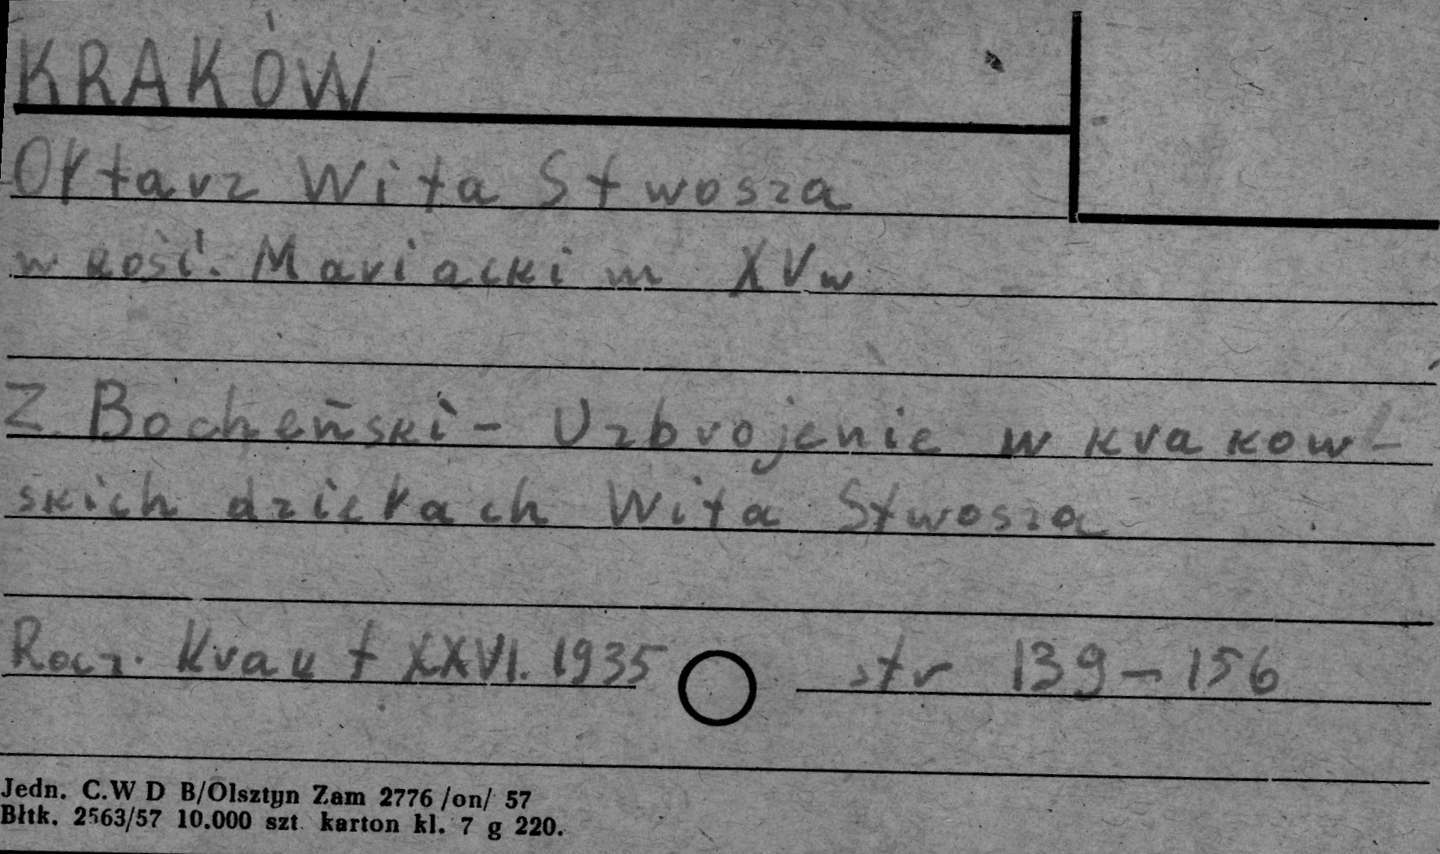 KRAKÓW
Ołtarz Wita Stwosza
w kość. Mariackim XVw
Z Bocheński - Uzbrojenie w krakow-
skich dziełach Wita Stwosza
Rocz. Krak t XXVI. 1935 str 139-156
Jedn. C.W D B/Olsztyn Zam 2776 /on/ 57
Błtk. 2563/57 10.000 szt. karton kl. 7 g 220.